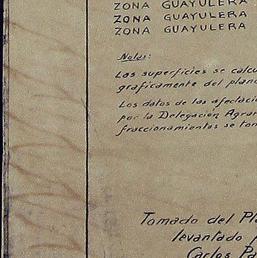 ZONA GUAYULERA
ZONA GUAYULERA
ZONA GUAYULERA
Notas:
Las superficies se calcu
graficamente del plano
Los datos de las afectacio
por la Delegación Agrar
fraccionamientos se tom
Tomado del Pla
levantado p
Carlos Pa